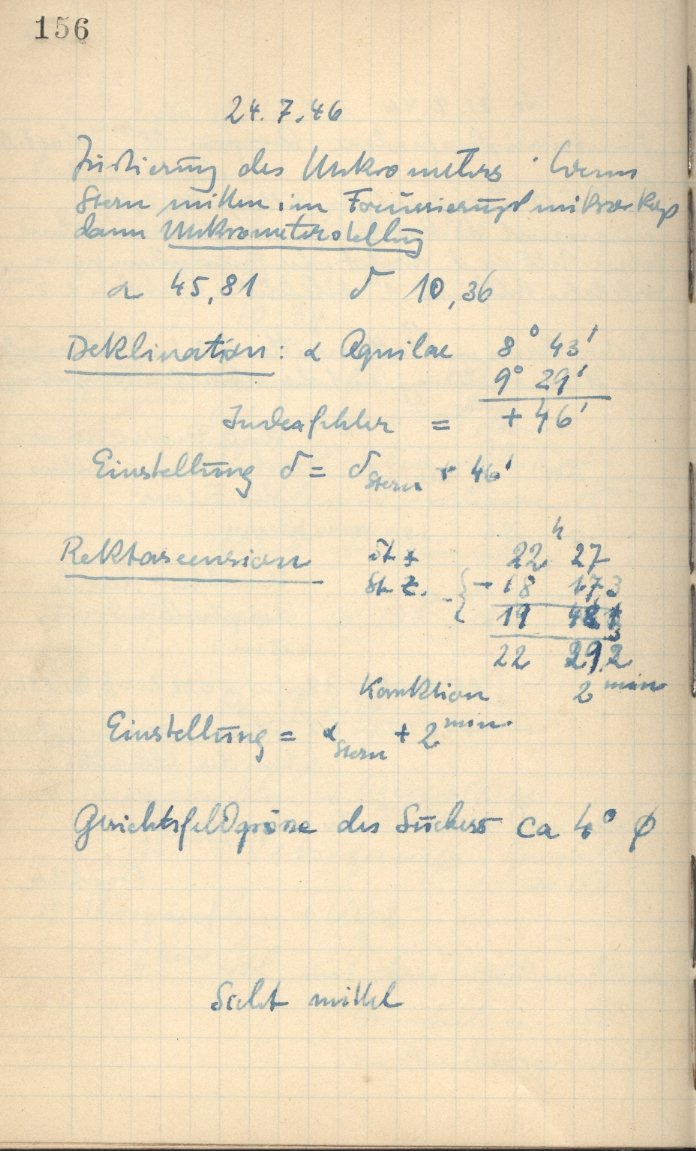 156
24.7.46
Justierung des Mikrometers. Wenn
Stern mitten im Fokussierungsmikroskop
dann Mikrometerstellung
α 45,81 δ 10,36
Deklination: α Aquilae 8° 43'
9° 29'
Indexfehler = + 46'
Einstellung δ = δ Stern + 46'
Rektascension 22 h 27
St. Z. - { - 18 17 3
19 48
22 29,2
Korrektion 2 min
Einstellung = α Stern + 2 min
Gesichtsfeldgrösse des Suchers ca 4° ϕ
Sicht mittel